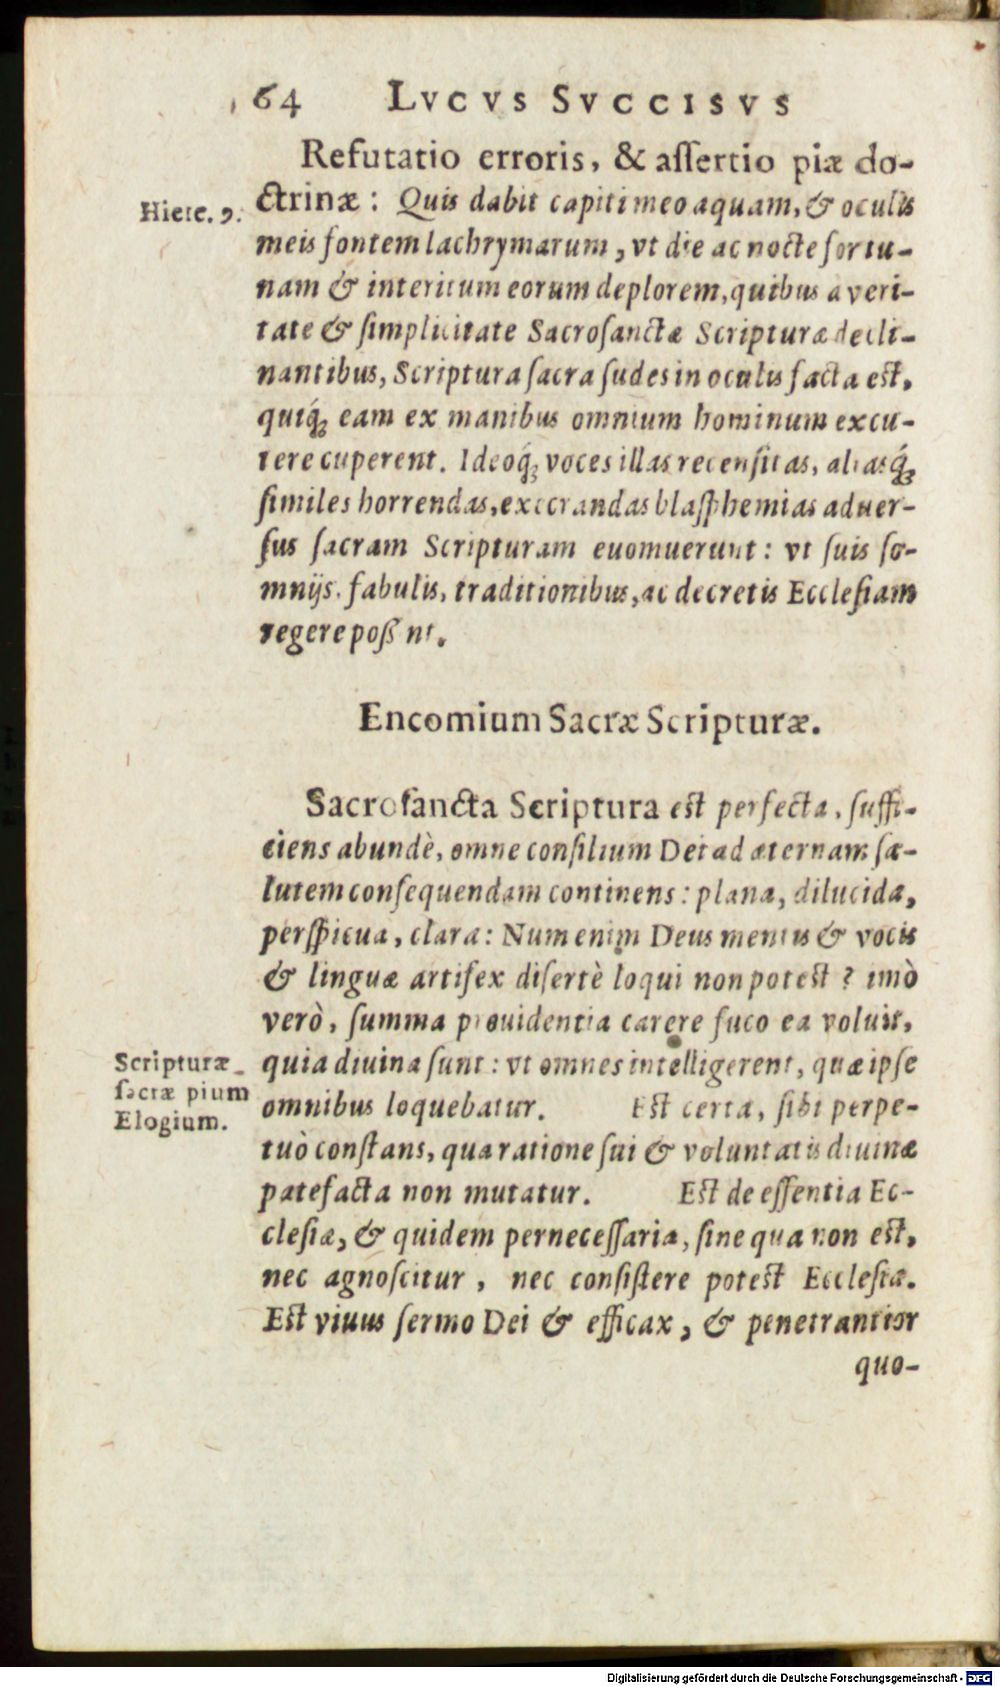 64 LVCVS SVCCISVS
Refutatio erroris, & aſſertio piæ do-
Hiere. 9. ctrinæ : Quis dabit capiti meo aquam, & oculis
meis fontem lachrymarum, vt die ac nocte fortu-
nam & interitum eorum deplorem, quibus a veri-
tate & ſimplicitate Sacroſanctæ Scripturæ decli-
nantibus, Scriptura ſacra ſudes in oculis facta eſt,
quiq́; eam ex manibus omnium hominum excu-
tere cuperent. Ideoq́; voces illas recenſitas, aliasq́;
ſimiles horrendas, execrandas blaſphemias aduer-
ſus ſacram Scripturam euomuerunt: vt ſuis ſo-
mnijs. fabulis, traditionibus, ac decretis Eccleſiam
regere poß nt.
Encomium Sacræ Scripturæ.
Sacroſancta Scriptura eſt perfecta, ſuffi-
ciens abundè, omne conſilium Dei ad æternam ſa-
lutem conſequendam continens: plana, dilucida,
perſpicua, clara: Num enim Deus mentis & vocis
& linguæ artifex diſertè loqui non poteſt ? imò
verò, ſumma prouidentia carere fuco ea voluit,
quia diuina ſunt: vt omnes intelligerent, quæ ipſe
omnibus loquebatur. Eſt certa, ſibi perpe-
Scripturæ
ſacræ pium
Elogium.
tuò conſtans, qua ratione ſui & voluntatis diuinæ
patefacta non mutatur. Eſt de eſſentia Ec-
cleſiæ, & quidem perneceſſaria, ſine qua non eſt,
nec agnoſcitur, nec conſiſtere poteſt Eccleſia.
Eſt viuus ſermo Dei & efficax, & penetrantior
quo-
Digitalisierung gefördert durch die Deutsche Forschungsgemeinschaft - DFG